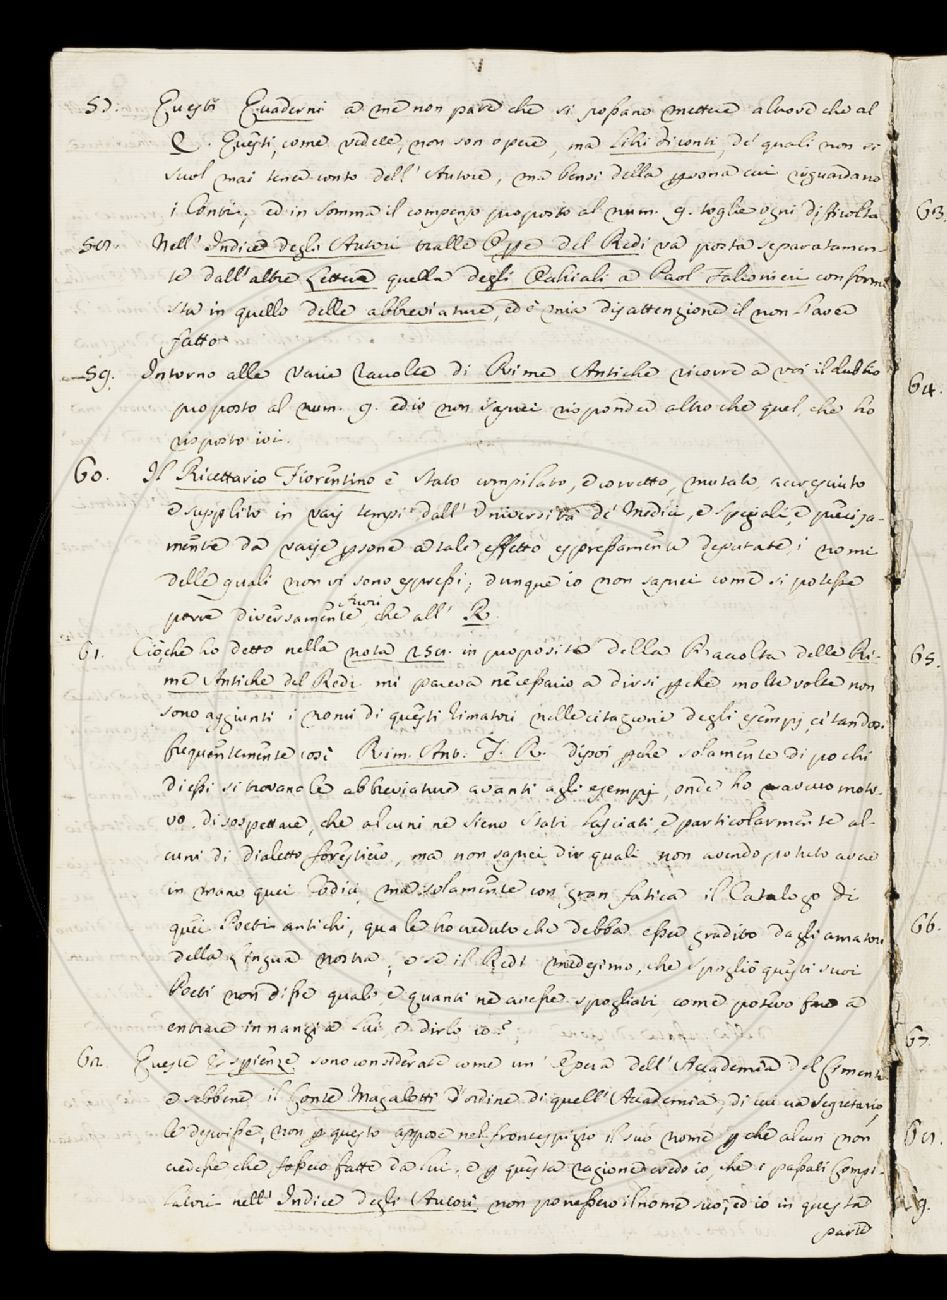 57. Questi Quaderni a me non pare che si possano mettere altrove che al
Q. Questi, come vedete, non son opere, ma Libri di conti, de' quali non si
suol mai tener conto dell' Autore, ma bensì della p̱sona cui riguardano
i Conti; ed in somma il compenso proposto al num. 9. toglie ogni difficoltà
58. Nell' Indice degli Autori tralle Opp̱e del Redi va posta separatamen-
te dall' altre Lettere quella degli Occhiali a Paol Falconieri conforme
sta in quello delle abbreviature, ed è mia disattenzione il non l'aver
fatto
59. Intorno alle varie raccolte di Rime Antiche ricorre a voi il dubbio
proposto al num. 9. ed io non saprei risponder altro che quel, che ho
risposto ivi.
60. Il Ricettario Fiorentino è stato compilato, e corretto, mutato, accresciuto
e supplito in varj tempi dall' Università de' Medici, e Speziali, e precisa-
mente da varie p̱sone a tale effetto espressamente deputate, i nomi
delle quali non vi sono espressi; dunque io non saprei come si potesse
porre diversamente che all' R.
61. Ciò, che ho detto nella nota 258. in proposito della Raccolta delle Ri-
me Antiche del Redi mi pareva necessario a dirsi p̱chè molte volte non
sono aggiunti i nomi di questi rimatori nelle citazione degli esempj, citandosi
frequentemente così Rim. Ant. F. R. dipoi p̱chè solamente di pochi
di essi si trovano le abbreviature avanti agli esempj, onde ho avuto moti-
vo di sospettare, che alcuni ne sieno stati lasciati, e particolarmente al-
cuni di dialetto forestiero, ma non saprei dir quali non avendo potuto avere
in mano quei Codici, ma solamente con gran fatica il Catalogo di
quei Poeti antichi, quale ho creduto che debba esser gradito dagli amatori
della Lingua nostra; e se il Redi medesimo, che spogliò questi suoi
Poeti non disse quali e quanti ne avesse spogliati, come potevo fare a
entrare innanzi a lui, e dirlo io?
62. Queste Esp̱ienze sono considerate come un' Opera dell' Accademia del Cimento
e sebbene il Conte Magalotti d'ordine di quell' Accademia, di cui era Segretario,
le descrisse, non p̱ questo appose nel frontespizio il suo nome p̱chè alcun non
credesse che fossero fatte da lui, e p̱ questa ragione credo io, che i passati Compi-
latori nell' Indice degli Autori non ponessero il nome suo; ed io in questa
parte
63.
64.
65.
66.
67.
68.